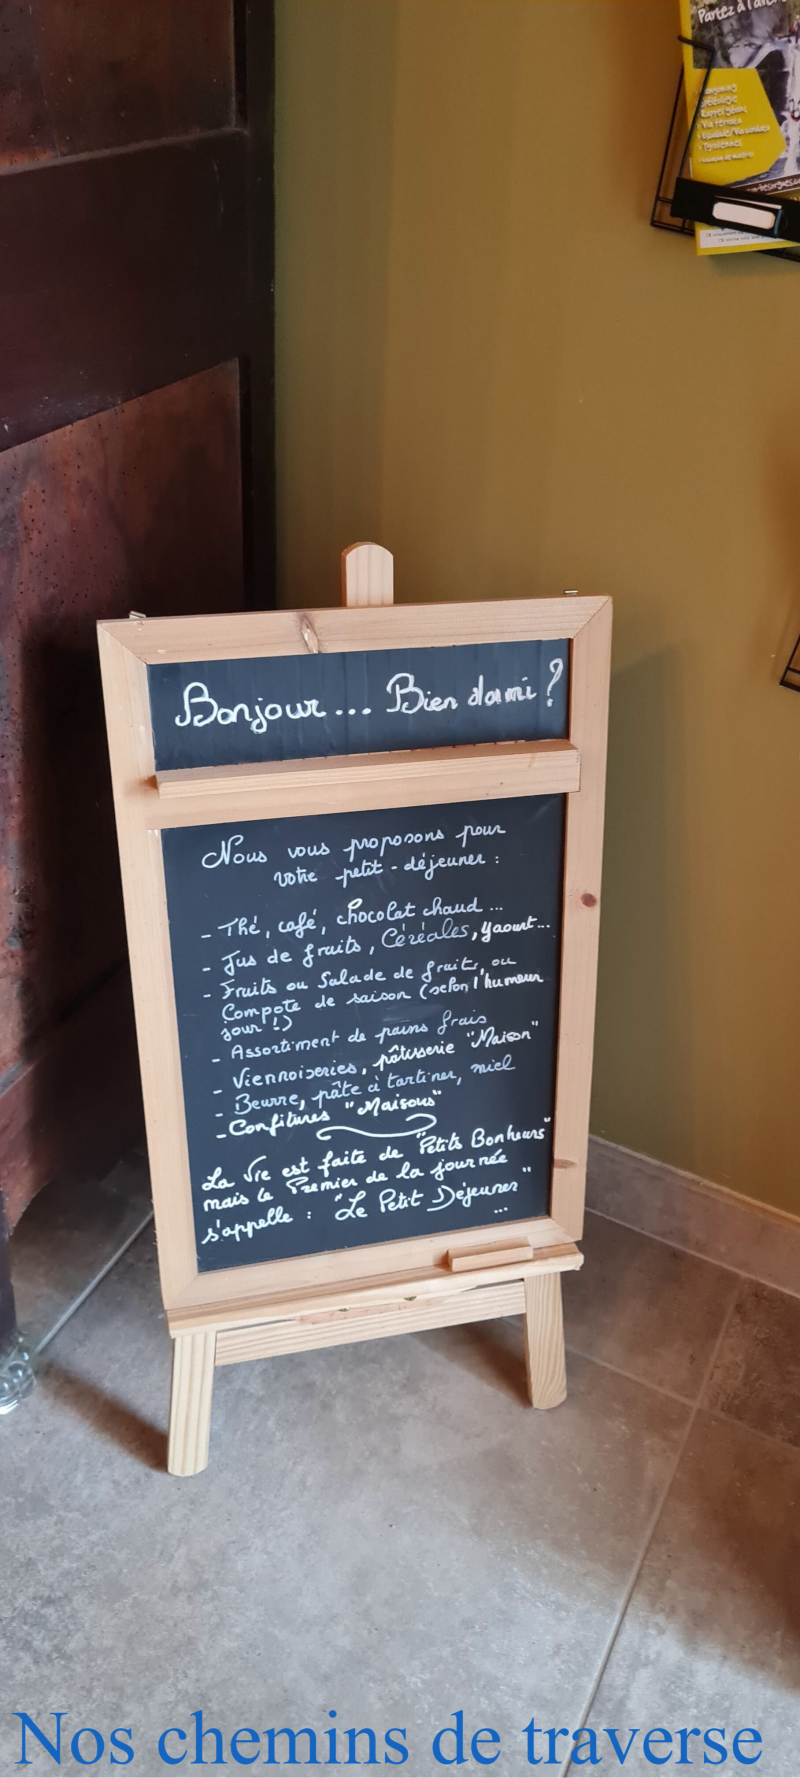 Partez à l'aven
Canyoning
Spéléologie
Rappel géant
Via ferrata
Tyroliennes
Bonjour... Bien dormi ?
Nous vous proposons pour
votre petit-déjeuner :
- Thé, café, chocolat chaud...
- Jus de fruits, Céréales, yaourt...
- Fruits ou Salade de fruits, ou
Compote de saison (selon l'humeur
jour !)
- Assortiment de pains frais
- Viennoiseries, pâtisserie "Maison"
- Beurre, pâte à tartiner, miel
- Confitures "Maisons"
La Vie est faite de "Petits Bonheurs"
mais le Premier de la journée
s'appelle : "Le Petit Déjeuner"
...
Nos chemins de traverse